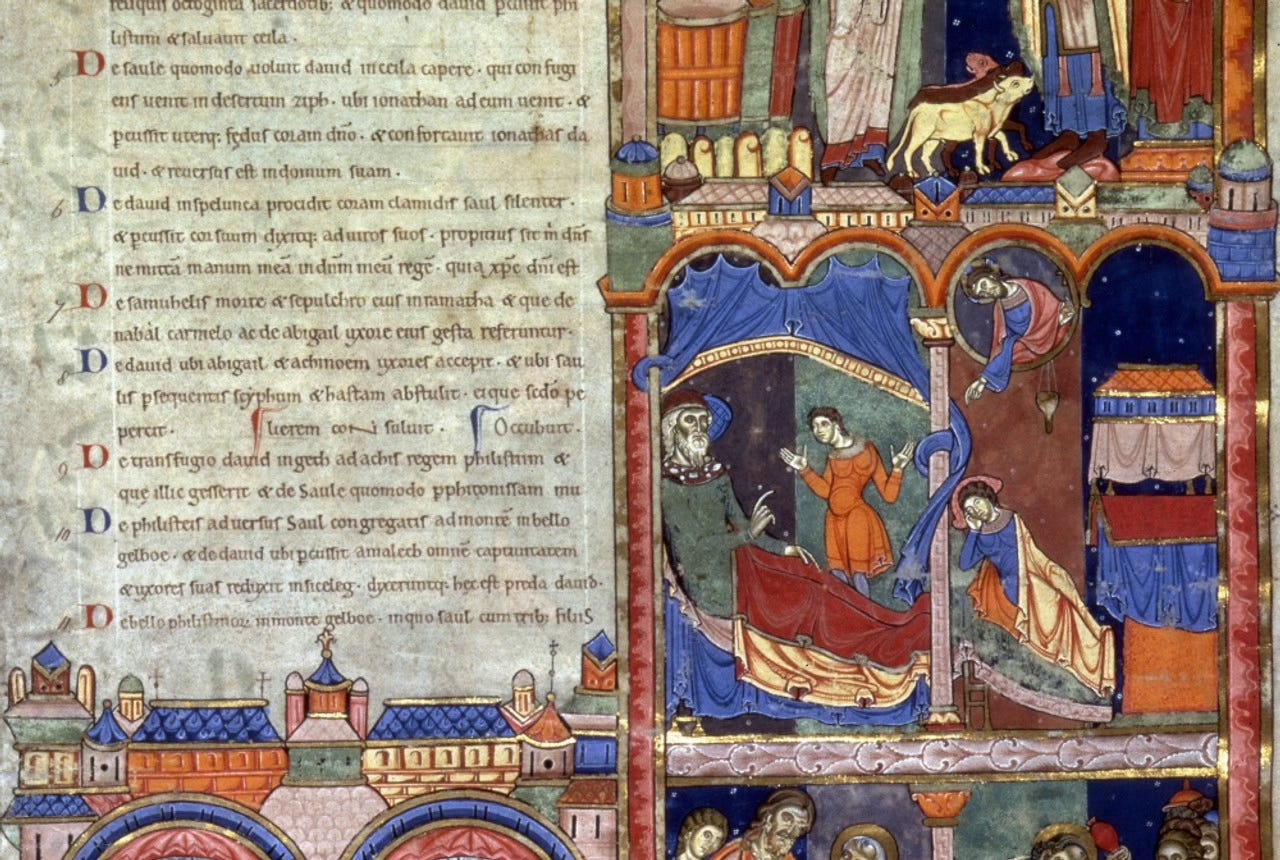 reliquis octoginta sacerdotib; & quomodo david pcussit phi
listim & saluauit ceila .
5 De saule quomodo uoluit dauid in ceila capere . qui con fugi
ens uenit in desertum ziph . ubi ionathan ad eum uenit . &
pcussit uterq; fędus coram dño . & confortauit ionathas da
uid . & reuersus est in domum suam .
6 De dauid in spelunca procidit coram clamidis saul silenter .
& pcussit cor suum dixitq; ad uiros suos . propitius sit m̄ dñs
ne mittā manum meā in dñm meū regē . quia xp̄c dñi est
7 De samuhelis morte & sepulchro eius in ramatha & que de
nabál carmelo ac de abigail uxore eius gesta referuntur .
8 De dauid ubi abigail & achinoem uxores accepit . & ubi sau
lis psequentis scyphum & hastam abstulit . eique scdo pe
percit . lierem suluit . Occubuit .
9 De transfugio dauid in geth ad achis regem philistim &
que illic gesserit & de Saule quomodo pphitonissam mu
10 De philisteis aduersus Saul congregatis ad montē in bello
gelboe . & de dauid ubi pcussit amalech omnē captiuitatem
& uxores suas reduxit in siceleg . dixeruntq; hec est preda dauid .
11 De bello in monte gelboe . in quo saul cum trib; filiis